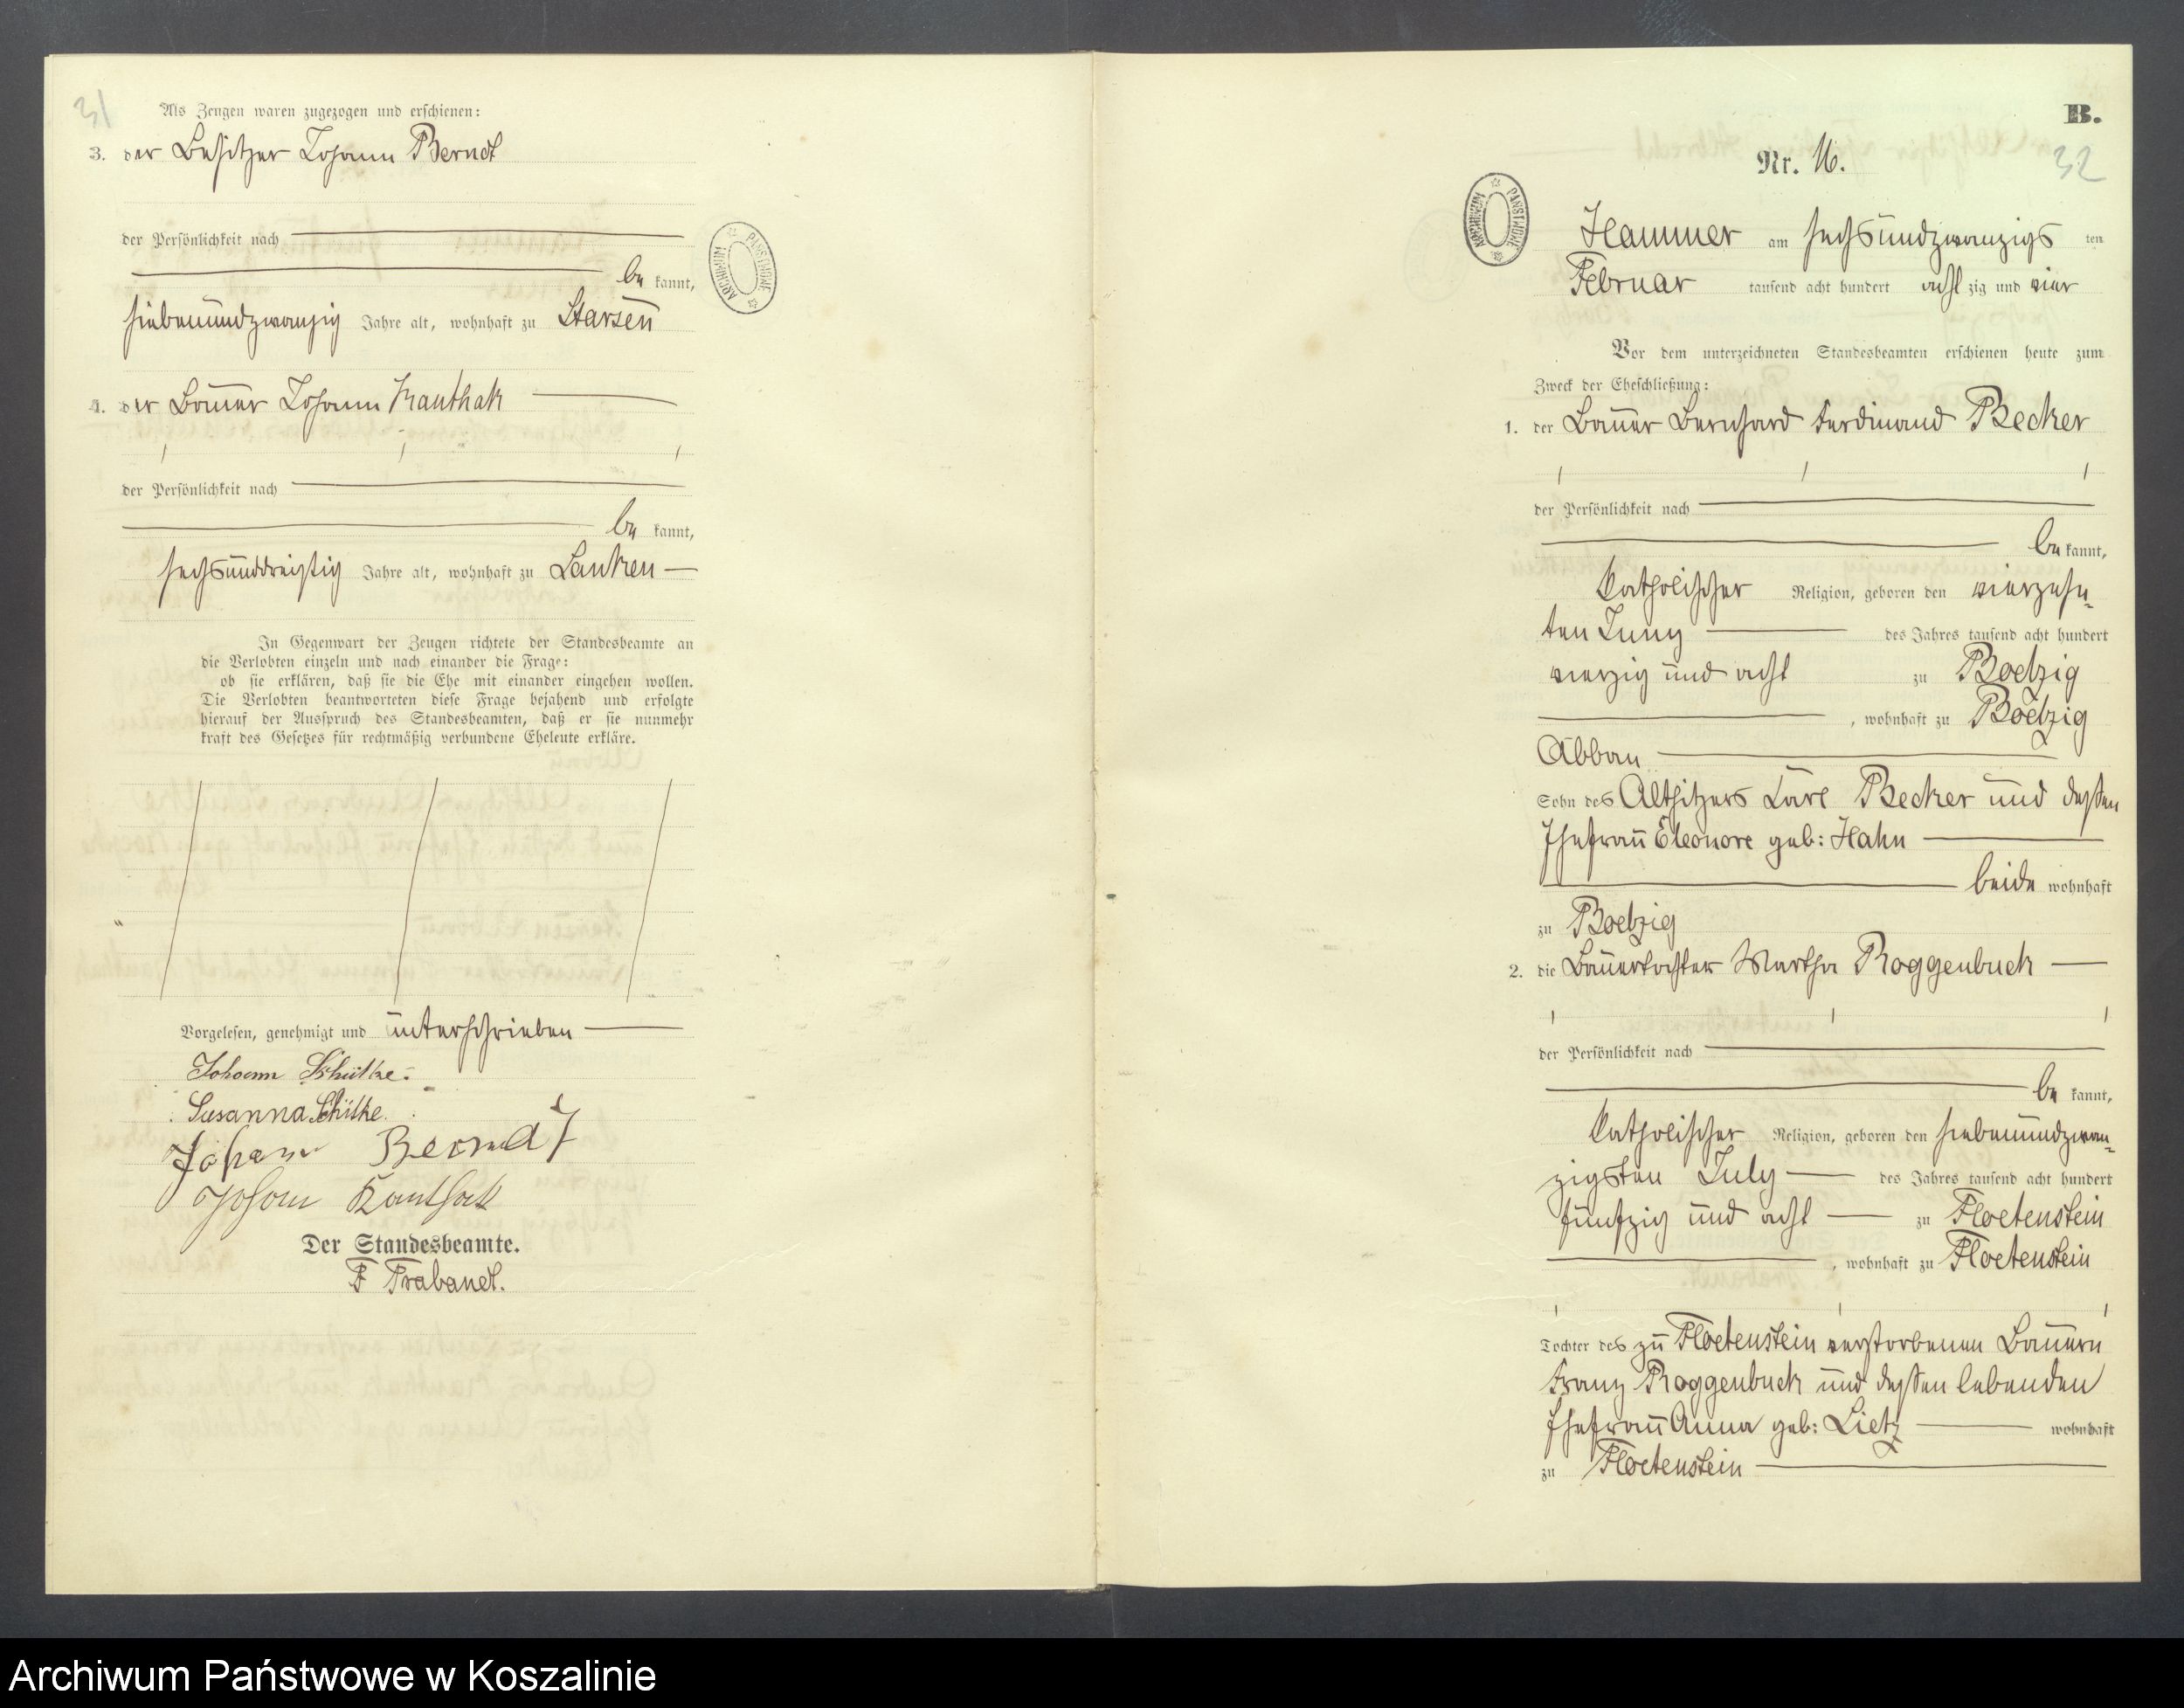 31
Als Zeugen waren zugezogen und erschienen:
3. der Besitzer Johann Berndt
der Persönlichkeit nach
be kannt,
siebenundzwanzig Jahre alt, wohnhaft zu Starsen
4. der Bauer Johann Kauthak
der Persönlichkeit nach
be kannt,
sechsunddreißig Jahre alt, wohnhaft zu Lanken
In Gegenwart der Zeugen richtete der Standesbeamte an
die Verlobten einzeln und nach einander die Frage:
ob sie erklären, daß sie die Ehe mit einander eingehen wollen.
Die Verlobten beantworteten diese Frage bejahend und erfolgte
hierauf der Ausspruch des Standesbeamten, daß er sie nunmehr
kraft des Gesetzes für rechtmäßig verbundene Eheleute erkläre.
Vorgelesen, genehmigt und unterschrieben
Johann Schülke
Susanna Schülke
Johann Berndt
Johann Kauthak
Der Standesbeamte.
F Trabandt.
ARCHIWUM PAŃSTWOWE
B.
Nr. 16.
32
ARCHIWUM PAŃSTWOWE
Hammer am sechsundzwanzigs ten
Februar tausend acht hundert acht zig und vier
Vor dem unterzeichneten Standesbeamten erschienen heute zum
Zweck der Eheschließung:
1. der Bauer Bernhard Ferdinand Becker
der Persönlichkeit nach
be kannt,
katholischer Religion, geboren den vierzehn-
ten Juny des Jahres tausend acht hundert
vierzig und acht zu Boetzig
, wohnhaft zu Boetzig
Abbau
Sohn des Altsitzers Carl Becker und dessen
Ehefrau Eleonore geb: Hahn
beide wohnhaft
zu Boetzig
2. die Bauertochter Martha Roggenbuck
der Persönlichkeit nach
be kannt,
katholischer Religion, geboren den siebenundzwan-
zigsten July des Jahres tausend acht hundert
fünfzig und acht zu Floetenstein
, wohnhaft zu Floetenstein
Tochter des zu Floetenstein verstorbenen Bauern
Franz Roggenbuck und dessen lebenden
Ehefrau Anna geb: Lietz wohnhaft
zu Floetenstein
Archiwum Państwowe w Koszalinie